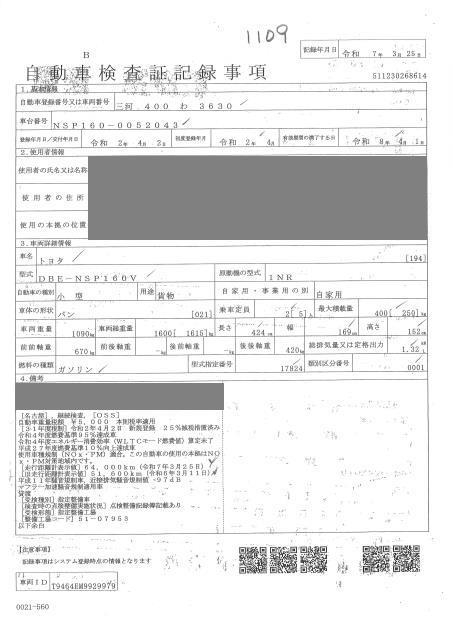 1109
B
記録年月日 令和 7年 3月 25日
自動車検査証記録事項
511230268614
1.基本情報
自動車登録番号又は車両番号 三河 400 わ 3630
車台番号 NSP160-0052043
登録年月日/交付年月日 令和 2年 4月 2日 初度登録年月 令和 2年 4月 有効期間の満了する日 令和 8年 4月 1日
2.使用者情報
使用者の氏名又は名称
使用者の住所
使用の本拠の位置
3.車両詳細情報
車名 トヨタ [194]
型式 DBE-NSP160V 原動機の型式 1NR
自動車の種別 小型 用途 貨物 自家用・事業用の別 自家用
車体の形状 バン [021] 乗車定員 2[ 5]人 最大積載量 400[ 250]kg
車両重量 1090kg 車両総重量 1600[ 1615]kg 長さ 424cm 幅 169cm 高さ 152cm
前前軸重 670kg 前後軸重 kg 後前軸重 kg 後後軸重 420kg 総排気量又は定格出力 1.32L
燃料の種類 ガソリン 型式指定番号 17824 類別区分番号 0001
4.備考
[名古屋], 継続検査, [OSS]
自動車重量税額 ¥5,000 本則税率適用
令和4年度燃費基準95%達成車
平成27年度燃費基準10%向上達成車
使用車種規制(NOx・PM)適合, この自動車の使用の本拠はNO
x・PM対策地域内です。
[走行距離計表示値]64,000km(令和7年3月25日)
[旧走行距離計表示値]51,600km(令和6年3月11日)
平成11年騒音規制車, 近接排気騒音規制値-97dB
マフラー加速騒音規制適用車
[受検種別]指定整備車
[検査時の点検整備実施状況]点検整備記録簿記載あり
[受検形態]指定整備工場
[整備工場コード]51-07953
以下余白
[注意事項]
記録事項はシステム登録時点の情報となります
車両ID T9464EM9929979
0021-560